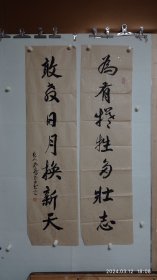 為有犧牲多壯志
敢教日月換新天
2024.03.12 16:06